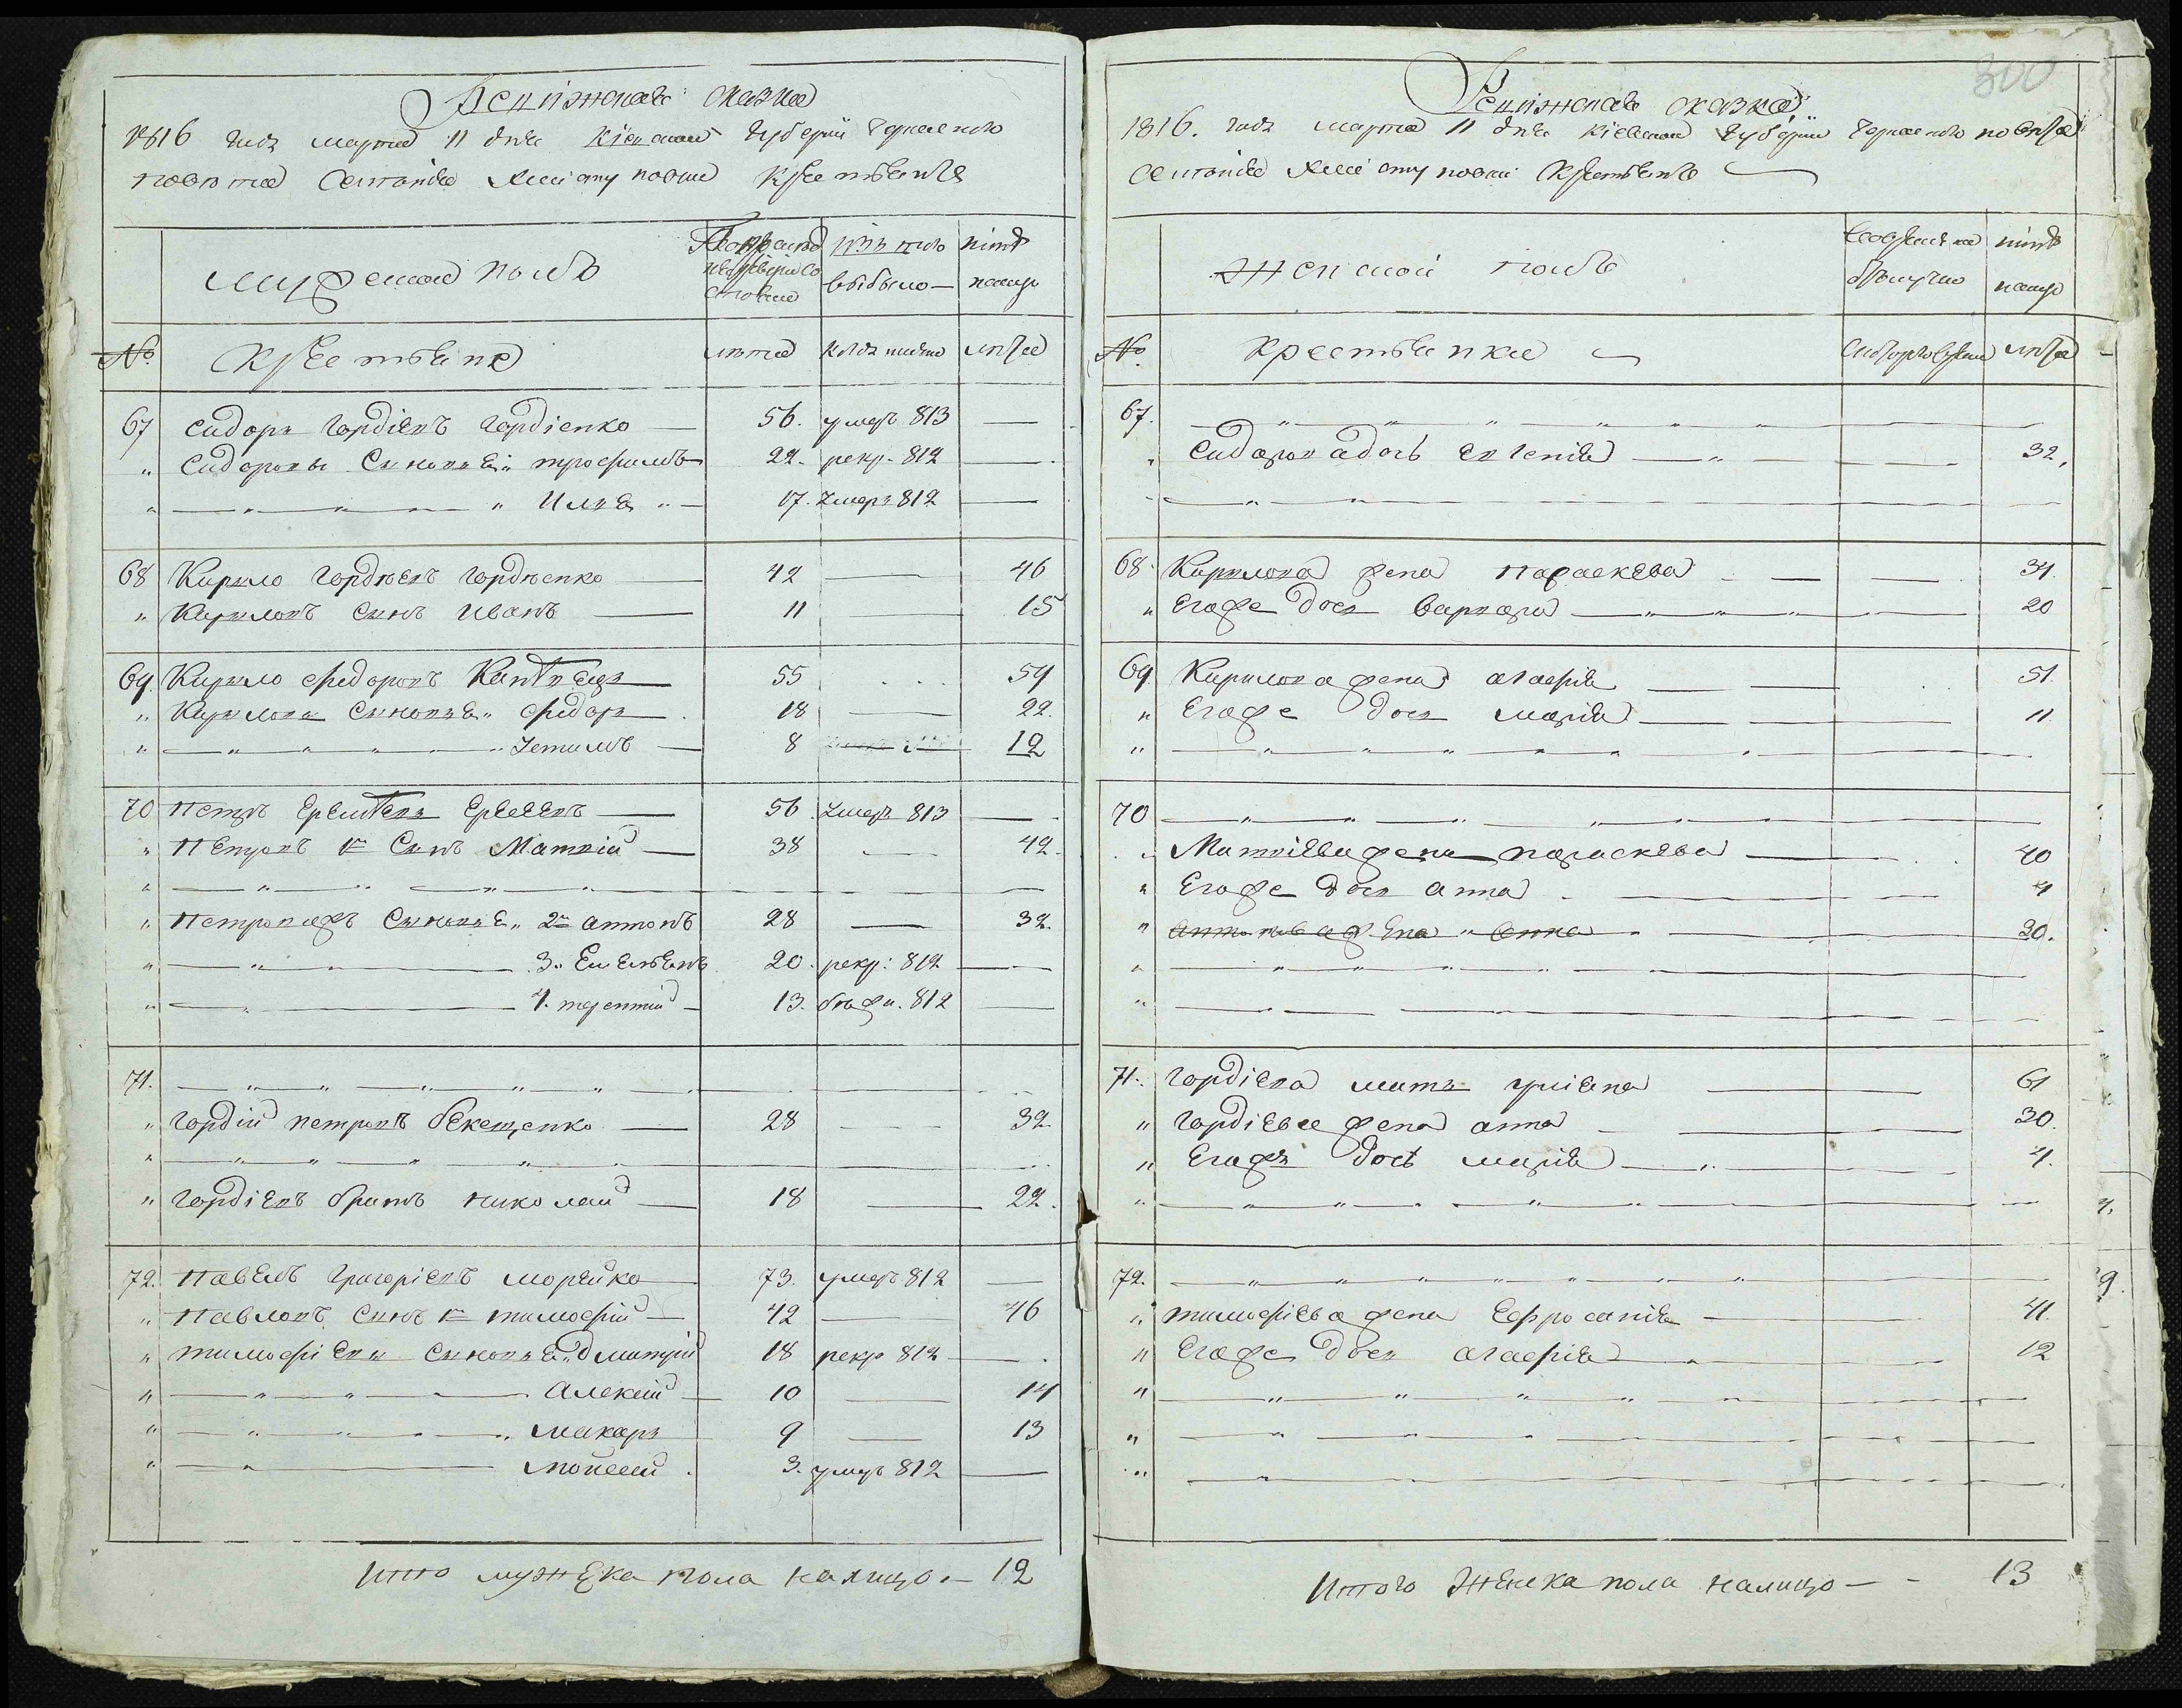 Ревизская сказка
1816 года марта 11 дня Киевской губернии Черкаского
повета селения крестьянъ
мужеской полъ
изъ того выбыло
ныне налицо
№ Крестьяне лета когда именно лета
67 Сидоръ Гордіевъ Гордіенко — 56. умеръ 813 —
„ Сидоровы Сыновья „ трофимъ 22. рекр. 812 —
„ — „ — „ — „ Илья „ — 17. Умеръ 812 —
68 Кирило Гордѣевъ Гордѣенко — 42 — 46
„ Кириловъ Сынъ Иванъ — 11 — 15
69. Кирило Федоровъ — 55 59
„ Кириловы Сыновья „ Федоръ — 18 — 22.
„ — „ — „ — Устимъ — 8 — 12
70 Петръ Еремѣевъ — 56 Умеръ 813 —
„ Петровъ 1й Сынъ Матвій — 38 — 42.
„ — „ — „ — „ —
„ Петроважъ Сыновья „ 2й антонъ 28 — 32.
„ — „ — 3. Емельянъ 20. рекр: 812 —
„ — „ — 4. терентій — 13. бѣжа. 812 —
71. — „ — „ — „ — „ —
„ Гордій Петровъ бекешенко — 28 — 32
„ — „ — „ — „ — „ —
„ Гордіевъ братъ николай — 18 — 22.
72. Павелъ Григоріевъ морейко 73. умеръ 812 —
„ Павловъ Сынъ 1й тимофій — 42 — 46
„ тимофіевы Сыновья „ дмитрій 18 рекр 812 —
„ — „ — „ — Алексій — 10 — 14
„ — „ — „ — Макаръ 9 — 13
„ — „ — Моисей . 3. умеръ 812 —
Итого мужска пола налицо — 12
300
Ревизская сказка
1816. года марта 11 дня Киевской губерніи Черкаского повета
селения крестьянъ
женской полъ
ныне налицо
№ Крестьянки лета
67. — „ — „ — „ — „ —
„ Сидорова дочь Евгенія — „ — 32.
„ — „ — „ —
68 Кирилова жена Параскева — 34.
„ Егоже дочь варвара — „ — 20
69 Кирилова жена агафія — 51.
„ Егоже дочь марія — 11
„ — „ — „ — „ — „ —
70 — „ — „ — „ — „ —
„ Матвіева жена параскева — 40
„ Егоже дочь анна — 4
„ антонова жена „ анна — 20.
„ — „ — „ — „ —
„ — „ — „ —
71. Гордіева мать уліана — 61
„ Гордіева жена анна — 30.
„ Егожъ дочь марія — „ — 4.
„ — „ — „ — „ — „ —
72. — „ — „ — „ — „ —
„ тимофіева жена Ефросинія — 41.
„ Егоже дочь агафія — 12
„ — „ — „ — „ — „ —
„ — „ — „ — „ —
„ — „ — „ —
Итого женска пола налицо — — 13